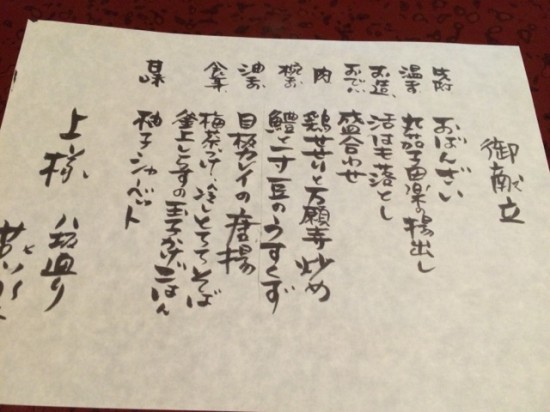 御献立
先附 おばんざい
温物 丸茄子田楽の揚出し
お造り 活はも落とし
おでん 盛合わせ
肉 鶏せせりと万願寺炒め
椀物 鱧と一寸豆のうすくず
油物 目板ガレイの唐揚
食事 梅茶づけ、冷しとろろそば
釜上しらすの玉子かけごはん
甘味 柚子シャーベット
上様